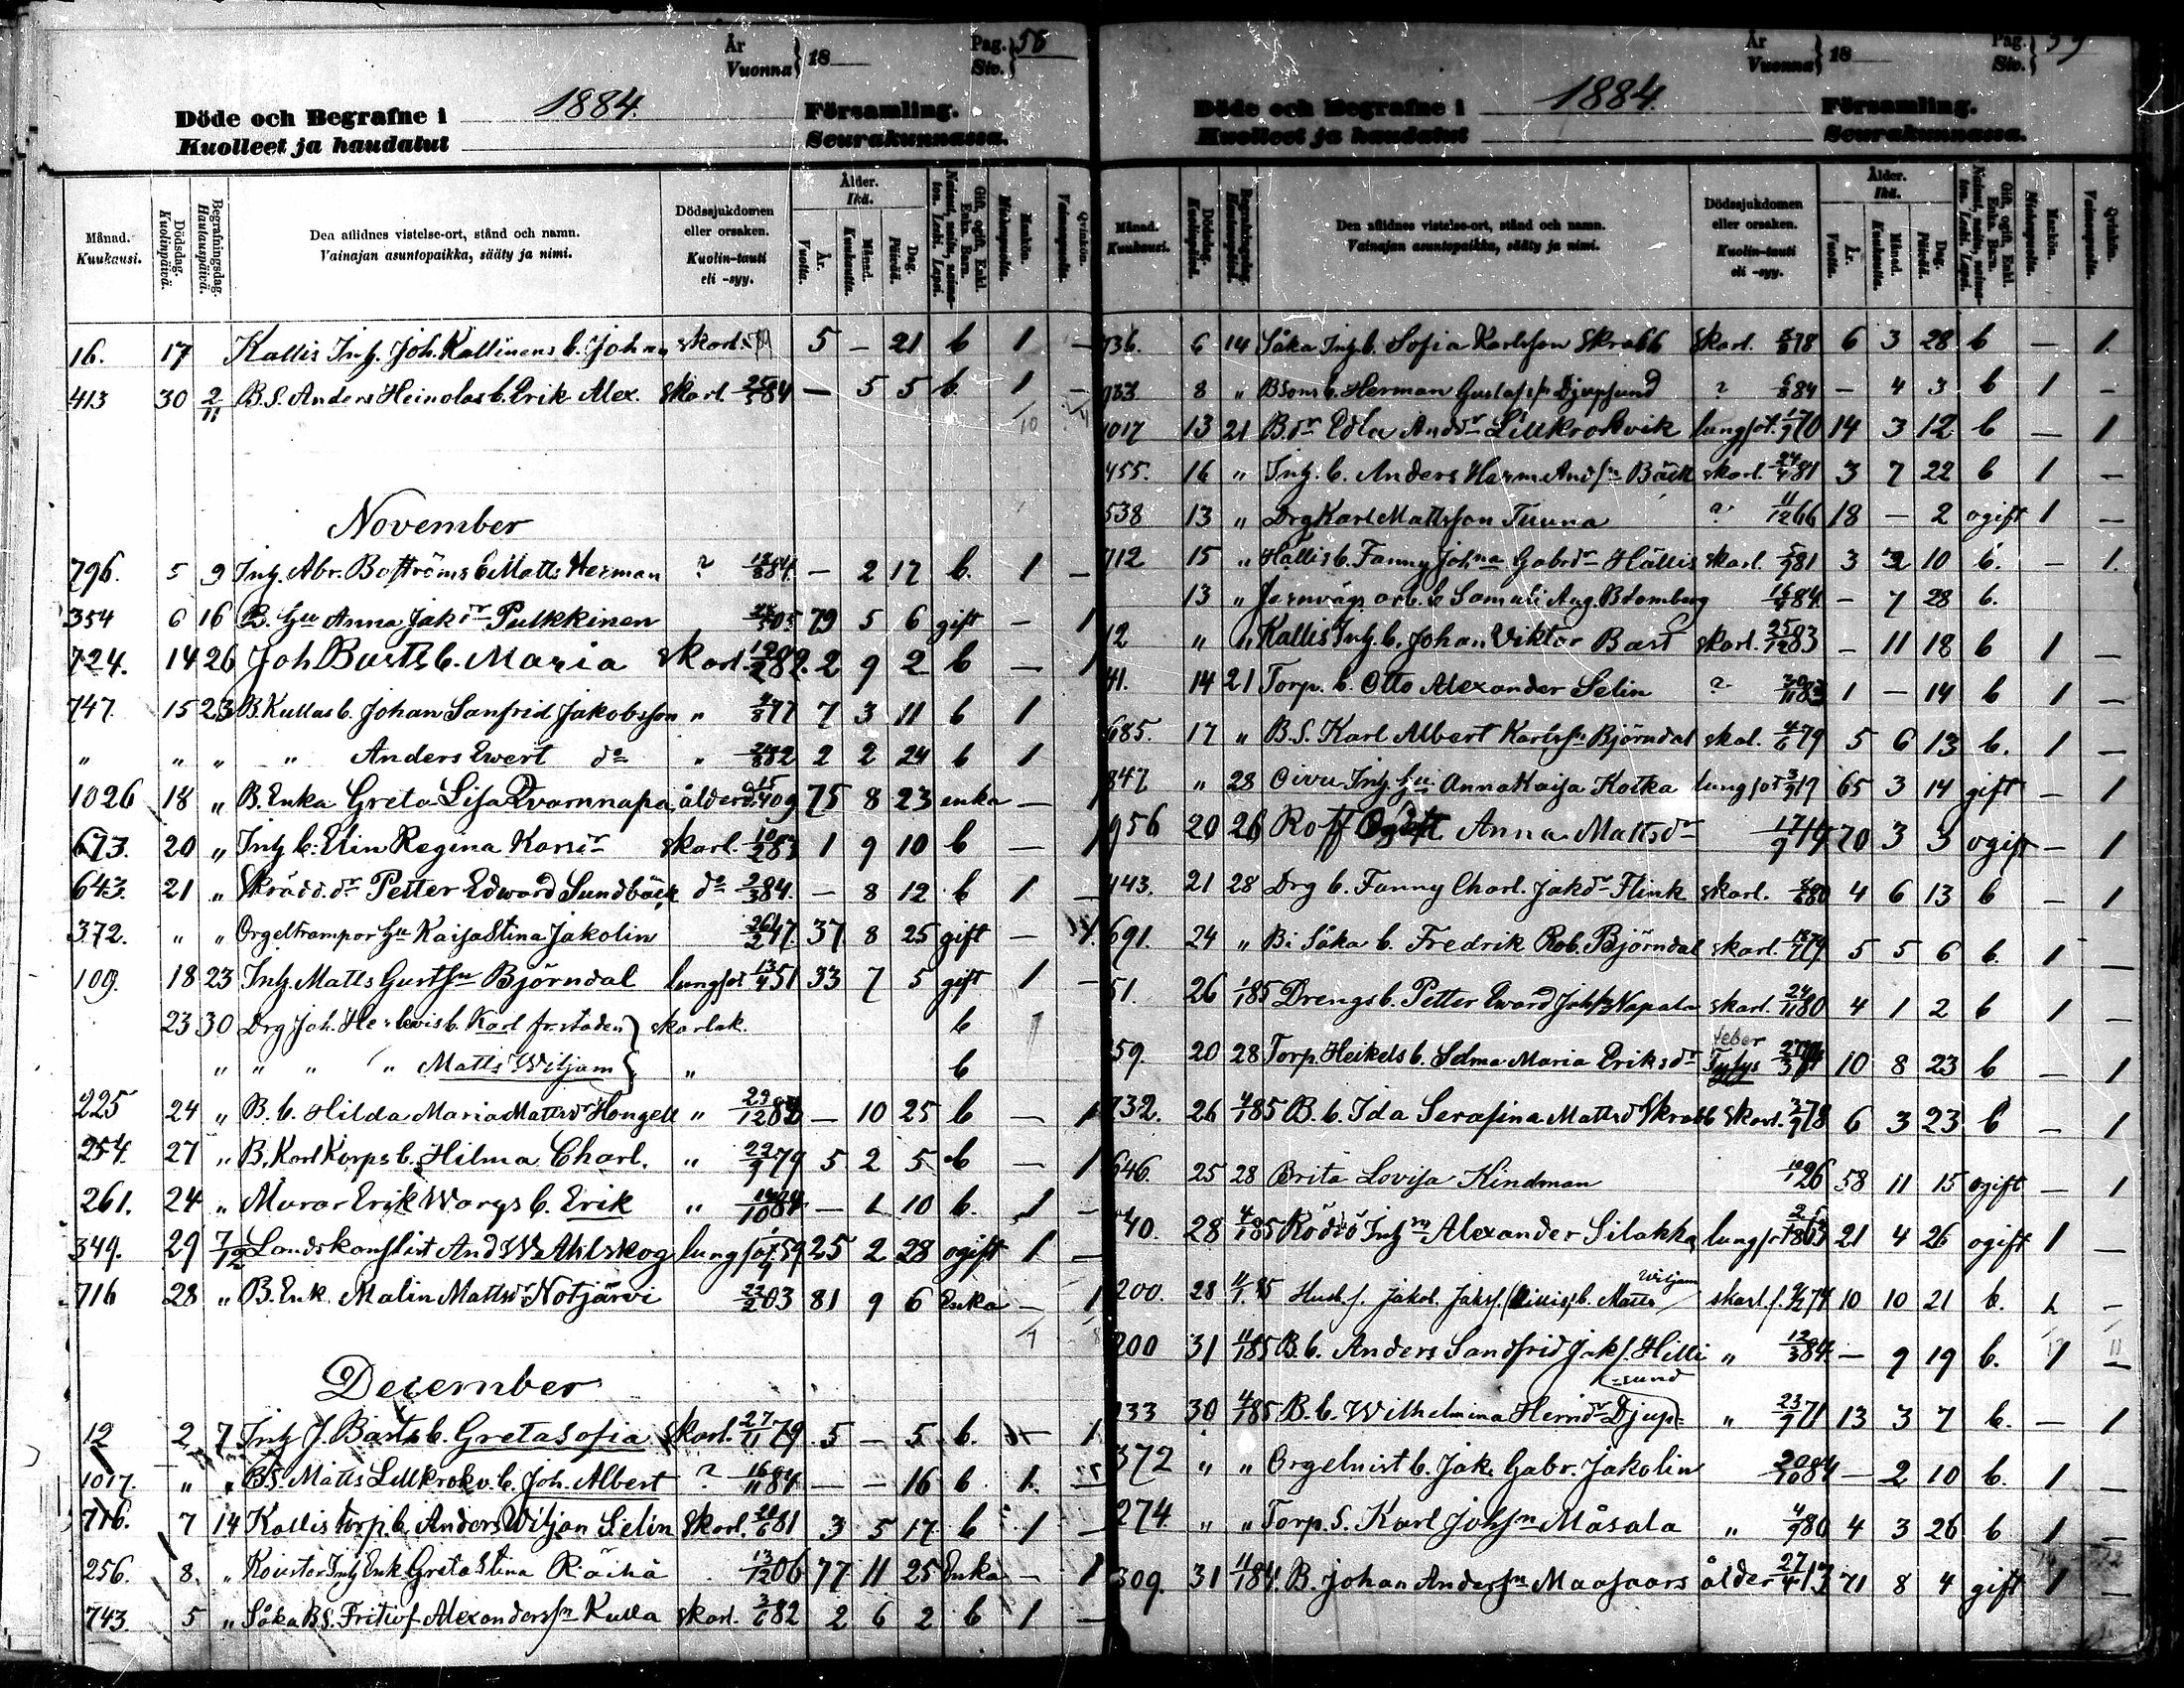 År
Vuonna } 18
Pag.
Siv. } 58
Döde och Begrafne i 1884. Församling.
Kuolleet ja haudatut Seurakunnassa.
Månad. Kuukausi.
Dödsdag. Kuolinpäivä.
Begrafningsdag. Hautauspäivä.
Den aflidnes vistelse-ort, stånd och namn.
Vainajan asuntopaikka, sääty ja nimi.
Dödssjukdomen eller orsaken.
Kuolin-tauti eli -syy.
Ålder. Ikä.
År. Vuotta.
Månad. Kuukautta.
Dag. Päivää.
Gift, ogift, Enkl. Enka. Barn.
Mankön. Miehenpuolta.
Qvinkön. Vaimonpuolta.
16. 17 Kallis Inh. Joh. Kallinens b. Johan skarl. 79 5 — 21 b 1 —
413 30 2/11 B.S. Anders Heinolas b. Erik Alex. skarl. 25/5 84 — 5 5 b. 1 —
November
796. 5 9 Inh. Abr. Boströms b. Matts Herman ? 18/8 84 — 2 17 b. 1 —
354 6 16 B. hu Anna Jakdr Pulkkinen 05 79 5 6 gift — 1
724. 14 26 Joh Basts b. Maria skarl. 12/2 82. 2 9 2 b — 1
747. 15 23 B. Kullas b. Johan Sanfrid Jakobsson " 4/8 77 7 3 11 b 1
" " " " Anders Ewert do " 82 2 2 24 b 1
1026 18 " B. Enka Greta Lisa Qvarnnapa ålderd. 09 75 8 23 enka — 1
673. 20 " Inh b. Elin Regina Karsdr skarl. 10/2 83 1 9 10 b — 1
643. 21 " Skrädd.dr Petter Edward Sundbäck do 84. — 8 12 b 1 —
372. " " Orgeltrampor hu Kaisa Stina Jakolin 26/2 47. 37 8 25 gift — 1
109. 18 23 Inh. Matts Gustsn Björndal lungsot 13/4 51 33 7 5 gift 1 —
23 30 Drg Joh. b. Karl fr. staden skarlak. b
" " " " Matts Wiljam " b
225 24 " B. b. Hilda Maria Mattsdr Hongell " 29/12 — 10 25 b — 1
254. 27 " B. Karl Korps b. Hilma Charl. " 22/9 79 5 2 5 b — 1
261. 24 " Murar Erik Wargs b. Erik " 14/10 84 — 1 10 b. 1 —
349. 29 7/12 Landskanslist And W. Ahlskog lungsot 59 25 2 28 ogift 1 —
716 28 " B. Enk. Malin Mattsdr Notjärvi 22/2 03 81 9 6 Enka — 1
December
12 2 7 Inh J. Basts b. Greta Sofia skarl. 27/11 79 5 — 5 b. — 1
1017. " " B.S. Matts Lillkrokv. b. Joh. Albert ? 16/11 84 — — 16 b 1
716. 7 14 Kallis torp. b. Anders Wiljam Selin skarl. 20/6 81 3 5 17 b 1 —
256. 8. " Inh Enk Greta Stina Räihä 13/12 06 77 11 25 Enka — 1
743. 5 " Såka B.S. Fritiof Alexanderssn Kulla skarl. 3/6 82 2 6 2 b 1 —
År
Vuonna } 18
Pag.
Siv. } 59
Döde och Begrafne i 1884. Församling.
Kuolleet ja haudatut Seurakunnassa.
Månad. Kuukausi.
Dödsdag. Kuolinpäivä.
Begrafningsdag. Hautauspäivä.
Den aflidnes vistelse-ort, stånd och namn.
Vainajan asuntopaikka, sääty ja nimi.
Dödssjukdomen eller orsaken.
Kuolin-tauti eli -syy.
Ålder. Ikä.
År. Vuotta.
Månad. Kuukautta.
Dag. Päivää.
Gift, ogift, Enkl. Enka. Barn.
Mankön. Miehenpuolta.
Qvinkön. Vaimonpuolta.
736. 6 14 Såka Inh b. Sofia Karlsson Skrabb Skarl. 8/8 78 6 3 28 b — 1.
933 8 " Bsons b. Herman Gustafssn Djupsund ? 84 — 4 3 b 1 —
1017 13 21 B.dr Edla Andsdr Lillkrokvik lungsot. 70 14 3 12 b — 1
455. 16 " Inh. b. Anders Herm. Andsn Bäck skarl. 24/4 81 3 7 22 b 1 —
538 13 " Drg Karl Mattsson Tuuna ? 11/12 66 18 — 2 ogift 1 —
712 15 " Hällis b. Fanny Johna Gabrdr Hällis skarl. 5/9 81 3 3 10 b. — 1.
13 " Jernväg. arb. b Samuli Aug. Blomberg 84. — 7 28 b.
12 " " Kallis Inh. b. Johan Viktor Bast skarl. 25/12 83 — 11 18 b 1 —
41. 14 21 Torp. b. Otto Alexander Selin ? 30/11 83 1 — 14 b 1 —
685. 17 " B.S. Karl Albert Karlssn Björndal skal. 4/6 79 5 6 13 b. 1 —
847 " 28 Oivu Inh. hu Anna Kaisa Kotka lungsot 3/9 19 65 3 14 gift — 1
956 20 26 Roff Ogift Anna Mattsdr 17/9 14 70 3 3 ogift — 1
443. 21 28 Drg b. Fanny Charl. Jakdr Flink skarl. 80 4 6 13 b — 1
691. 24 " Bi Såka b. Fredrik Rob. Björndal skarl. 79 5 5 6 b. 1 —
51. 26 1/1 85 Drengs b. Petter Eward Johssn Napala skarl. 24/11 80 4 1 2 b 1 —
59. 20 28 Torp. Heikels b. Selma Maria Eriksdr feber Tyfus 27/3 74 10 8 23 b — 1
732. 26 4/1 85 B. b. Ida Serafina Mattsd Skrabb skarl. 3/9 78 6 3 23 b — 1
646. 25 28 Brita Lovisa Kindman 10/1 26 58 11 15 ogift — 1
40. 28 4/1 85 Rödsö Inh sn Alexander Silakka lungsot 63 21 4 26 ogift 1 —
200. 28 11/1 85 Husb. s. Jakob Jakss. Hillis b. Matts Wiljam skarl. f. 74 10 10 21 b. 1 —
200 31 11/1 85 B. b. Anders Sandfrid Jaks. Hilli " 12/3 84. — 9 19 b. 1 —
933 30 4/1 85 B. b. Wilhelmina Hermdr Djup=sund " 23/9 71 13 3 7 b. — 1
372 " " Orgelnist b. Jak. Gabr. Jakolin 20/10 84 — 2 10 b. 1 —
274. " " Torp. S. Karl Johssn Måsala " 4/9 80 4 3 26 b 1 —
309. 31 11/1 84. B. Johan Anderssn Maasaars ålder 27/4 13 71 8 4 gift 1 —